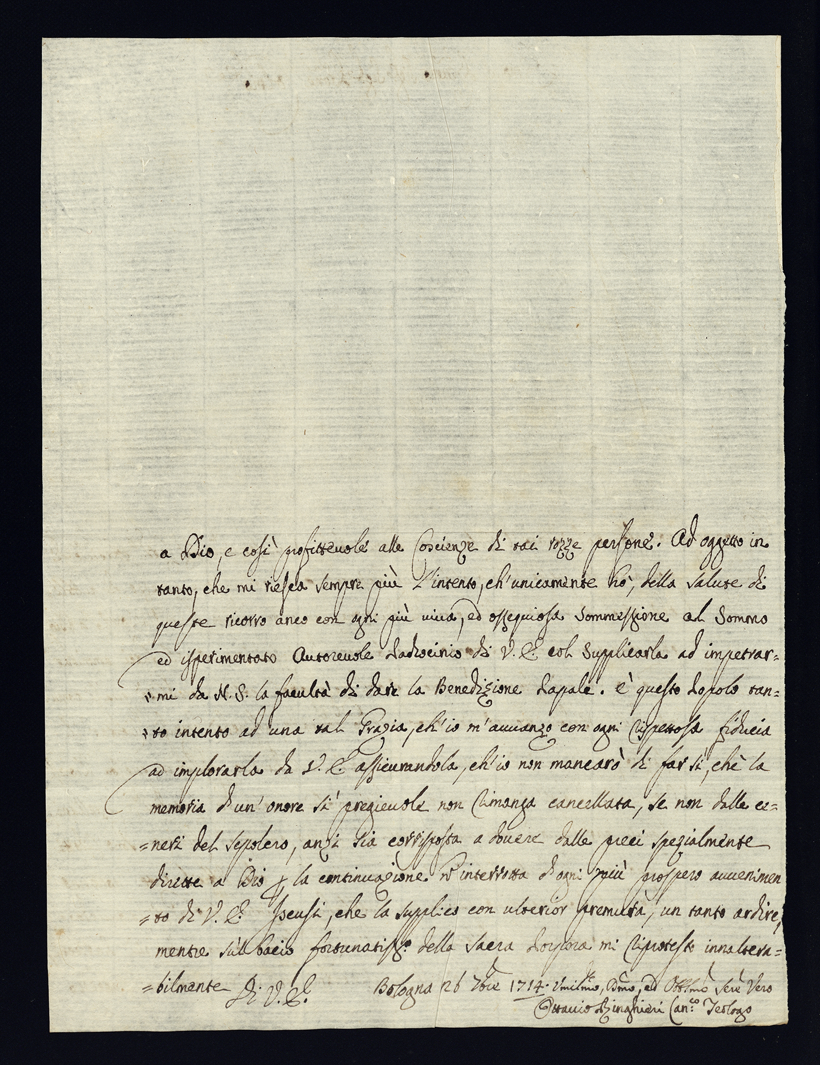 a Dio, e così profittevole alle Coscienze di tai rozze persone. Ad oggetto in
tanto, che mi riesca sempre più l'intento, ch'unicamente hò, della salute di
queste ricorro anco con ogni più viva, ed ossequiosa sommessione al Sommo
ed isperimentato Autorevole Padrocinio di V. E. col supplicarla ad impetrar=
=mi da N. S. la facultà di dare la Benedizione Papale. è questo Popolo tan=
=to intento ad una tal Grazia, ch'io m'avvanzo con ogni rispettosa fiducia
ad implorarla da V. E. assicurandola, ch'io non mancarò di far sì, che la
memoria d'un'onore sì pregievole non rimanga cancellata, se non dalle ce=
=neri del sepolcro, anzi sia corrisposta a dovere dalle preci spezialmente
dirette a Dio p la continuazione n'interrotta d'ogni più prospero avvenimen
=to di V. E. Iscusi, che la supplico con ulterior premura, un tanto ardire,
mentre sùl bacio fortunatiss.o della Sacra Porpora mi riprotesto innaltera=
=bilmente Di V. E. Bologna 26 7bre 1714. Umilmo, Dmo, ed Obbmo Serv Vero
Ottavio Ringhieri Can.co Teologo